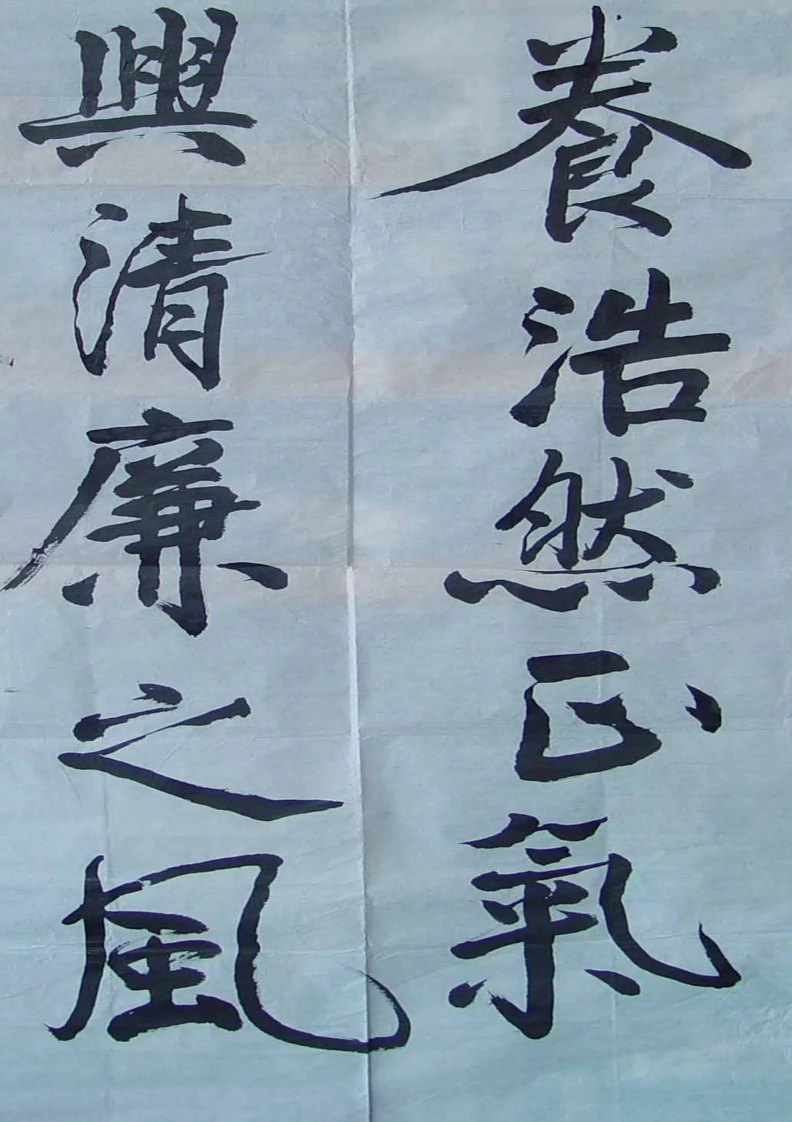 養浩然正氣
興清廉之風